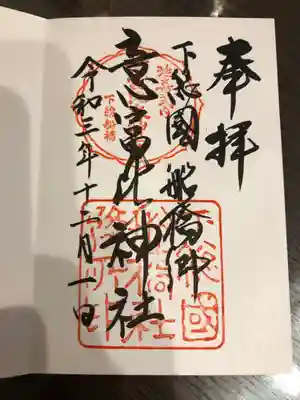 奉拝
下総國 船橋郷
意富比神社
令和三年十二月一日
下総船橋